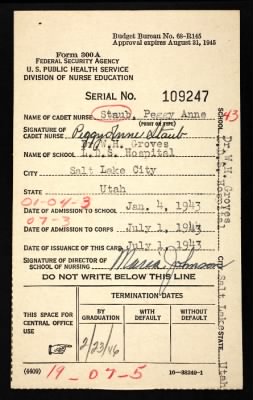 Budget Bureau No. 68-R145
Approval expires August 31, 1945
Form 300A
FEDERAL SECURITY AGENCY
U. S. PUBLIC HEALTH SERVICE
DIVISION OF NURSE EDUCATION
SERIAL NO. 109247
NAME OF CADET NURSE Staub, Peggy Anne 43
(PRINT OR TYPE)
SIGNATURE OF
CADET NURSE Peggy Anne Staub
Dr. W.H. Groves
NAME OF SCHOOL L.D.S. Hospital
CITY Salt Lake City
STATE Utah
01-04-3
DATE OF ADMISSION TO SCHOOL Jan. 4, 1943
07-3
DATE OF ADMISSION TO CORPS July 1, 1943
DATE OF ISSUANCE OF THIS CARD July 1, 1943
SIGNATURE OF DIRECTOR
OF SCHOOL OF NURSING Maria Johnson
DO NOT WRITE BELOW THIS LINE
THIS SPACE FOR
CENTRAL OFFICE
USE
TERMINATION DATES
BY
GRADUATION
WITH
DEFAULT
WITHOUT
DEFAULT
2/23/46
(6609) 19-07-5
16-38240-1
SCHOOL Dr. W.H. Groves
L.D.S. Hospital
CITY Salt Lake STATE Utah